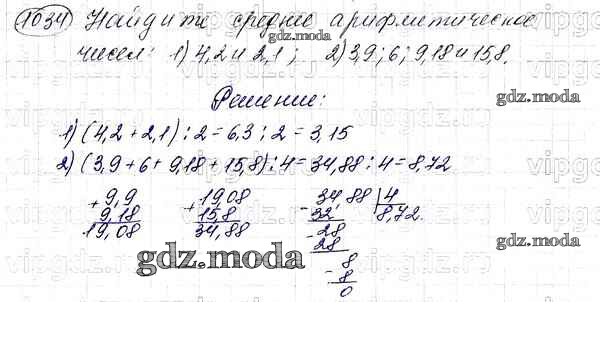 1034 Найдите среднее арифметическое
чисел: 1) 4,2 и 2,1; 2) 3,9; 6; 9,18 и 15,8.
gdz.moda
Решение:
1) (4,2 + 2,1) : 2 = 6,3 : 2 = 3,15
2) (3,9 + 6 + 9,18 + 15,8) : 4 = 34,88 : 4 = 8,72
+ 9,9
9,18
19,08
+ 19,08
15,8
34,88
- 34,88 | 4
32 8,72.
- 28
28
8
- 8
0
gdz.moda
gdz.moda